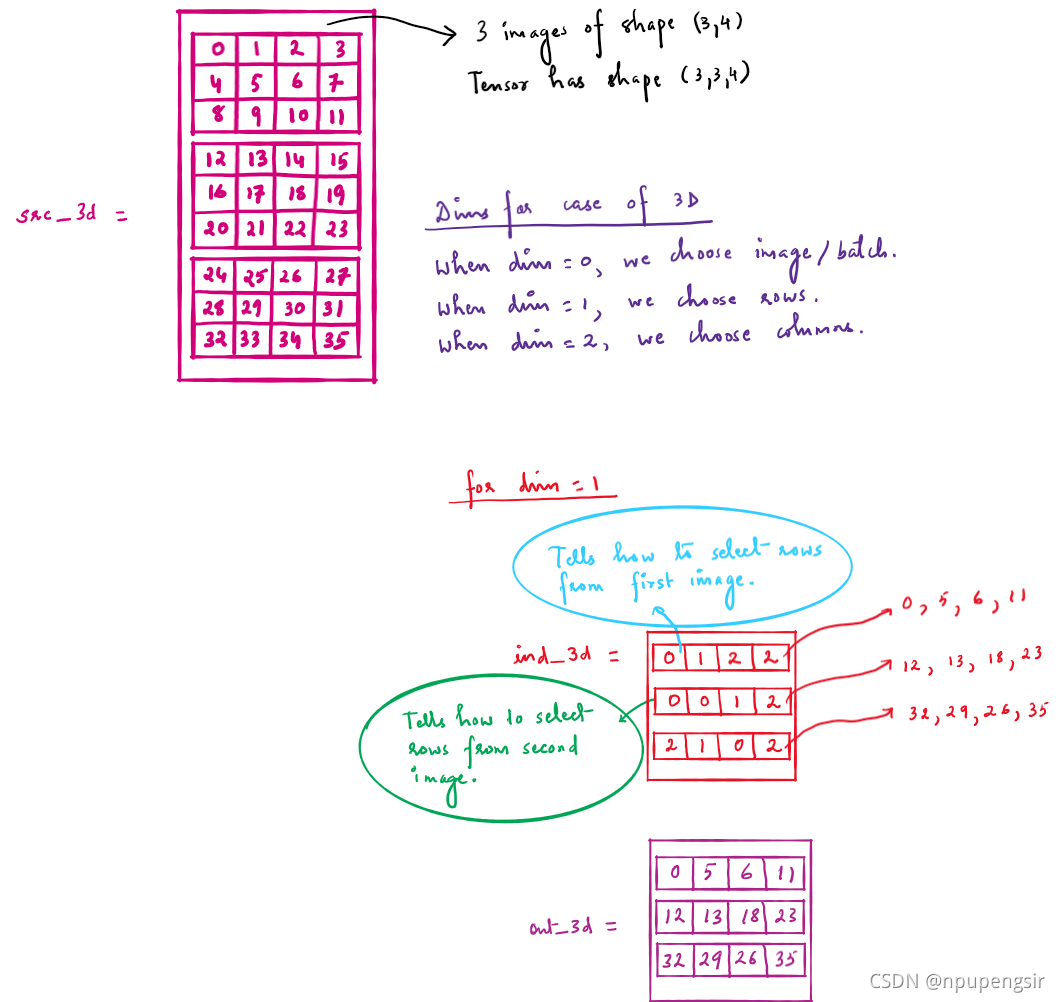 3 images of shape (3,4)
Tensor has shape (3,3,4)
0 1 2 3
4 5 6 7
8 9 10 11
12 13 14 15
16 17 18 19
20 21 22 23
24 25 26 27
28 29 30 31
32 33 34 35
src_3d =
Dims for case of 3D
when dim = 0, we choose image/batch.
when dim = 1, we choose rows.
when dim = 2, we choose columns.
for dim = 1
Tells how to select rows
from first image.
ind_3d =
0 1 2 2
0 0 1 2
2 1 0 2
0, 5, 6, 11
12, 13, 18, 23
32, 29, 26, 35
Tells how to select
rows from second
image.
out_3d =
0 5 6 11
12 13 18 23
32 29 26 35
CSDN @npupengsir